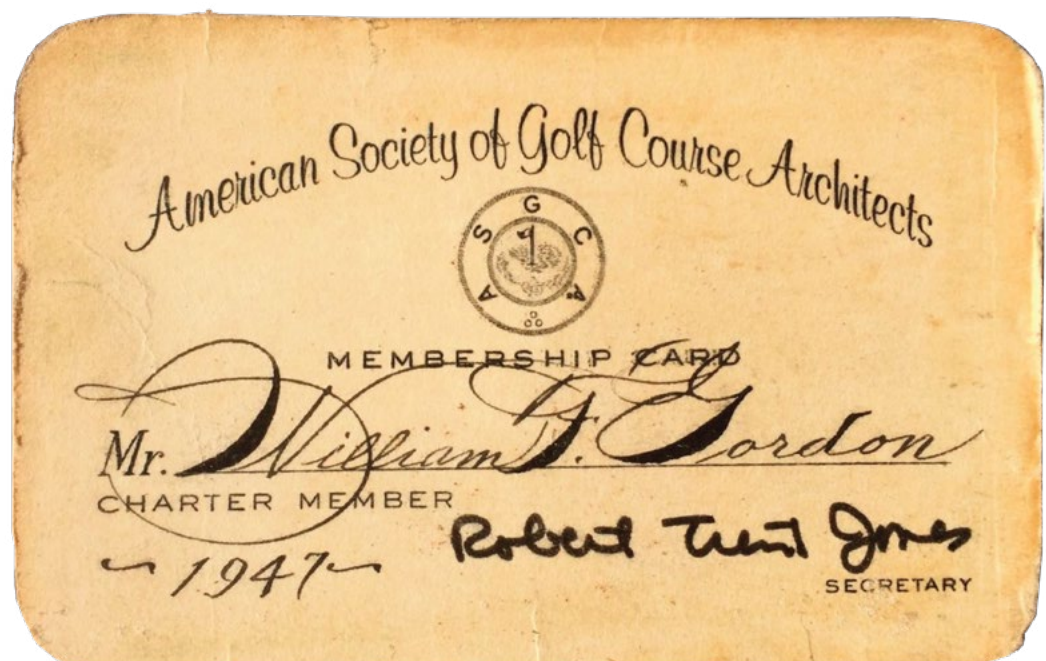 American Society of Golf Course Architects
A S G C A
MEMBERSHIP CARD
Mr. William F. Gordon
CHARTER MEMBER
Robert Trent Jones
~ 1947 ~
SECRETARY